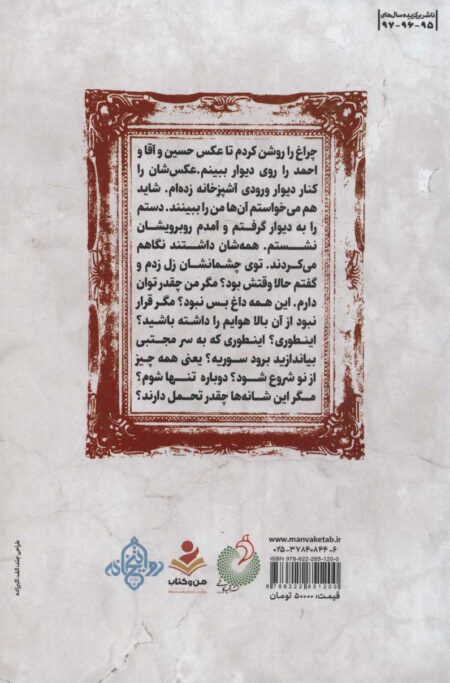 ناشر برگزیده سال‌های
۹۵-۹۶-۹۷
چراغ را روشن کردم تا عکس حسین و آقا و
احمد را روی دیوار ببینم.عکس‌شان را
کنار دیوار ورودی آشپزخانه زده‌ام. شاید
هم می‌خواستم آن‌ها من را ببینند. دستم
را به دیوار گرفتم و آمدم روبرویشان
نشستم. همه‌شان داشتند نگاهم
می‌کردند. توی چشمانشان زل زدم و
گفتم حالا وقتش بود؟ مگر من چقدر توان
دارم. این همه داغ بس نبود؟ مگر قرار
نبود از آن بالا هوایم را داشته باشید؟
اینطوری؟ اینطوری که به سر مجتبی
بیاندازید برود سوریه؟ یعنی همه چیز
از نو شروع شود؟ دوباره تنها شوم؟
مگر این شانه‌ها چقدر تحمل دارند؟
www.manvaketab.ir
۰۲۵-۳۷۸۴۰۸۴۴-۶
ISBN 978-622-285-120-0
9786222851200
قیمت: ۵۰۰۰۰ تومان
من و کتاب